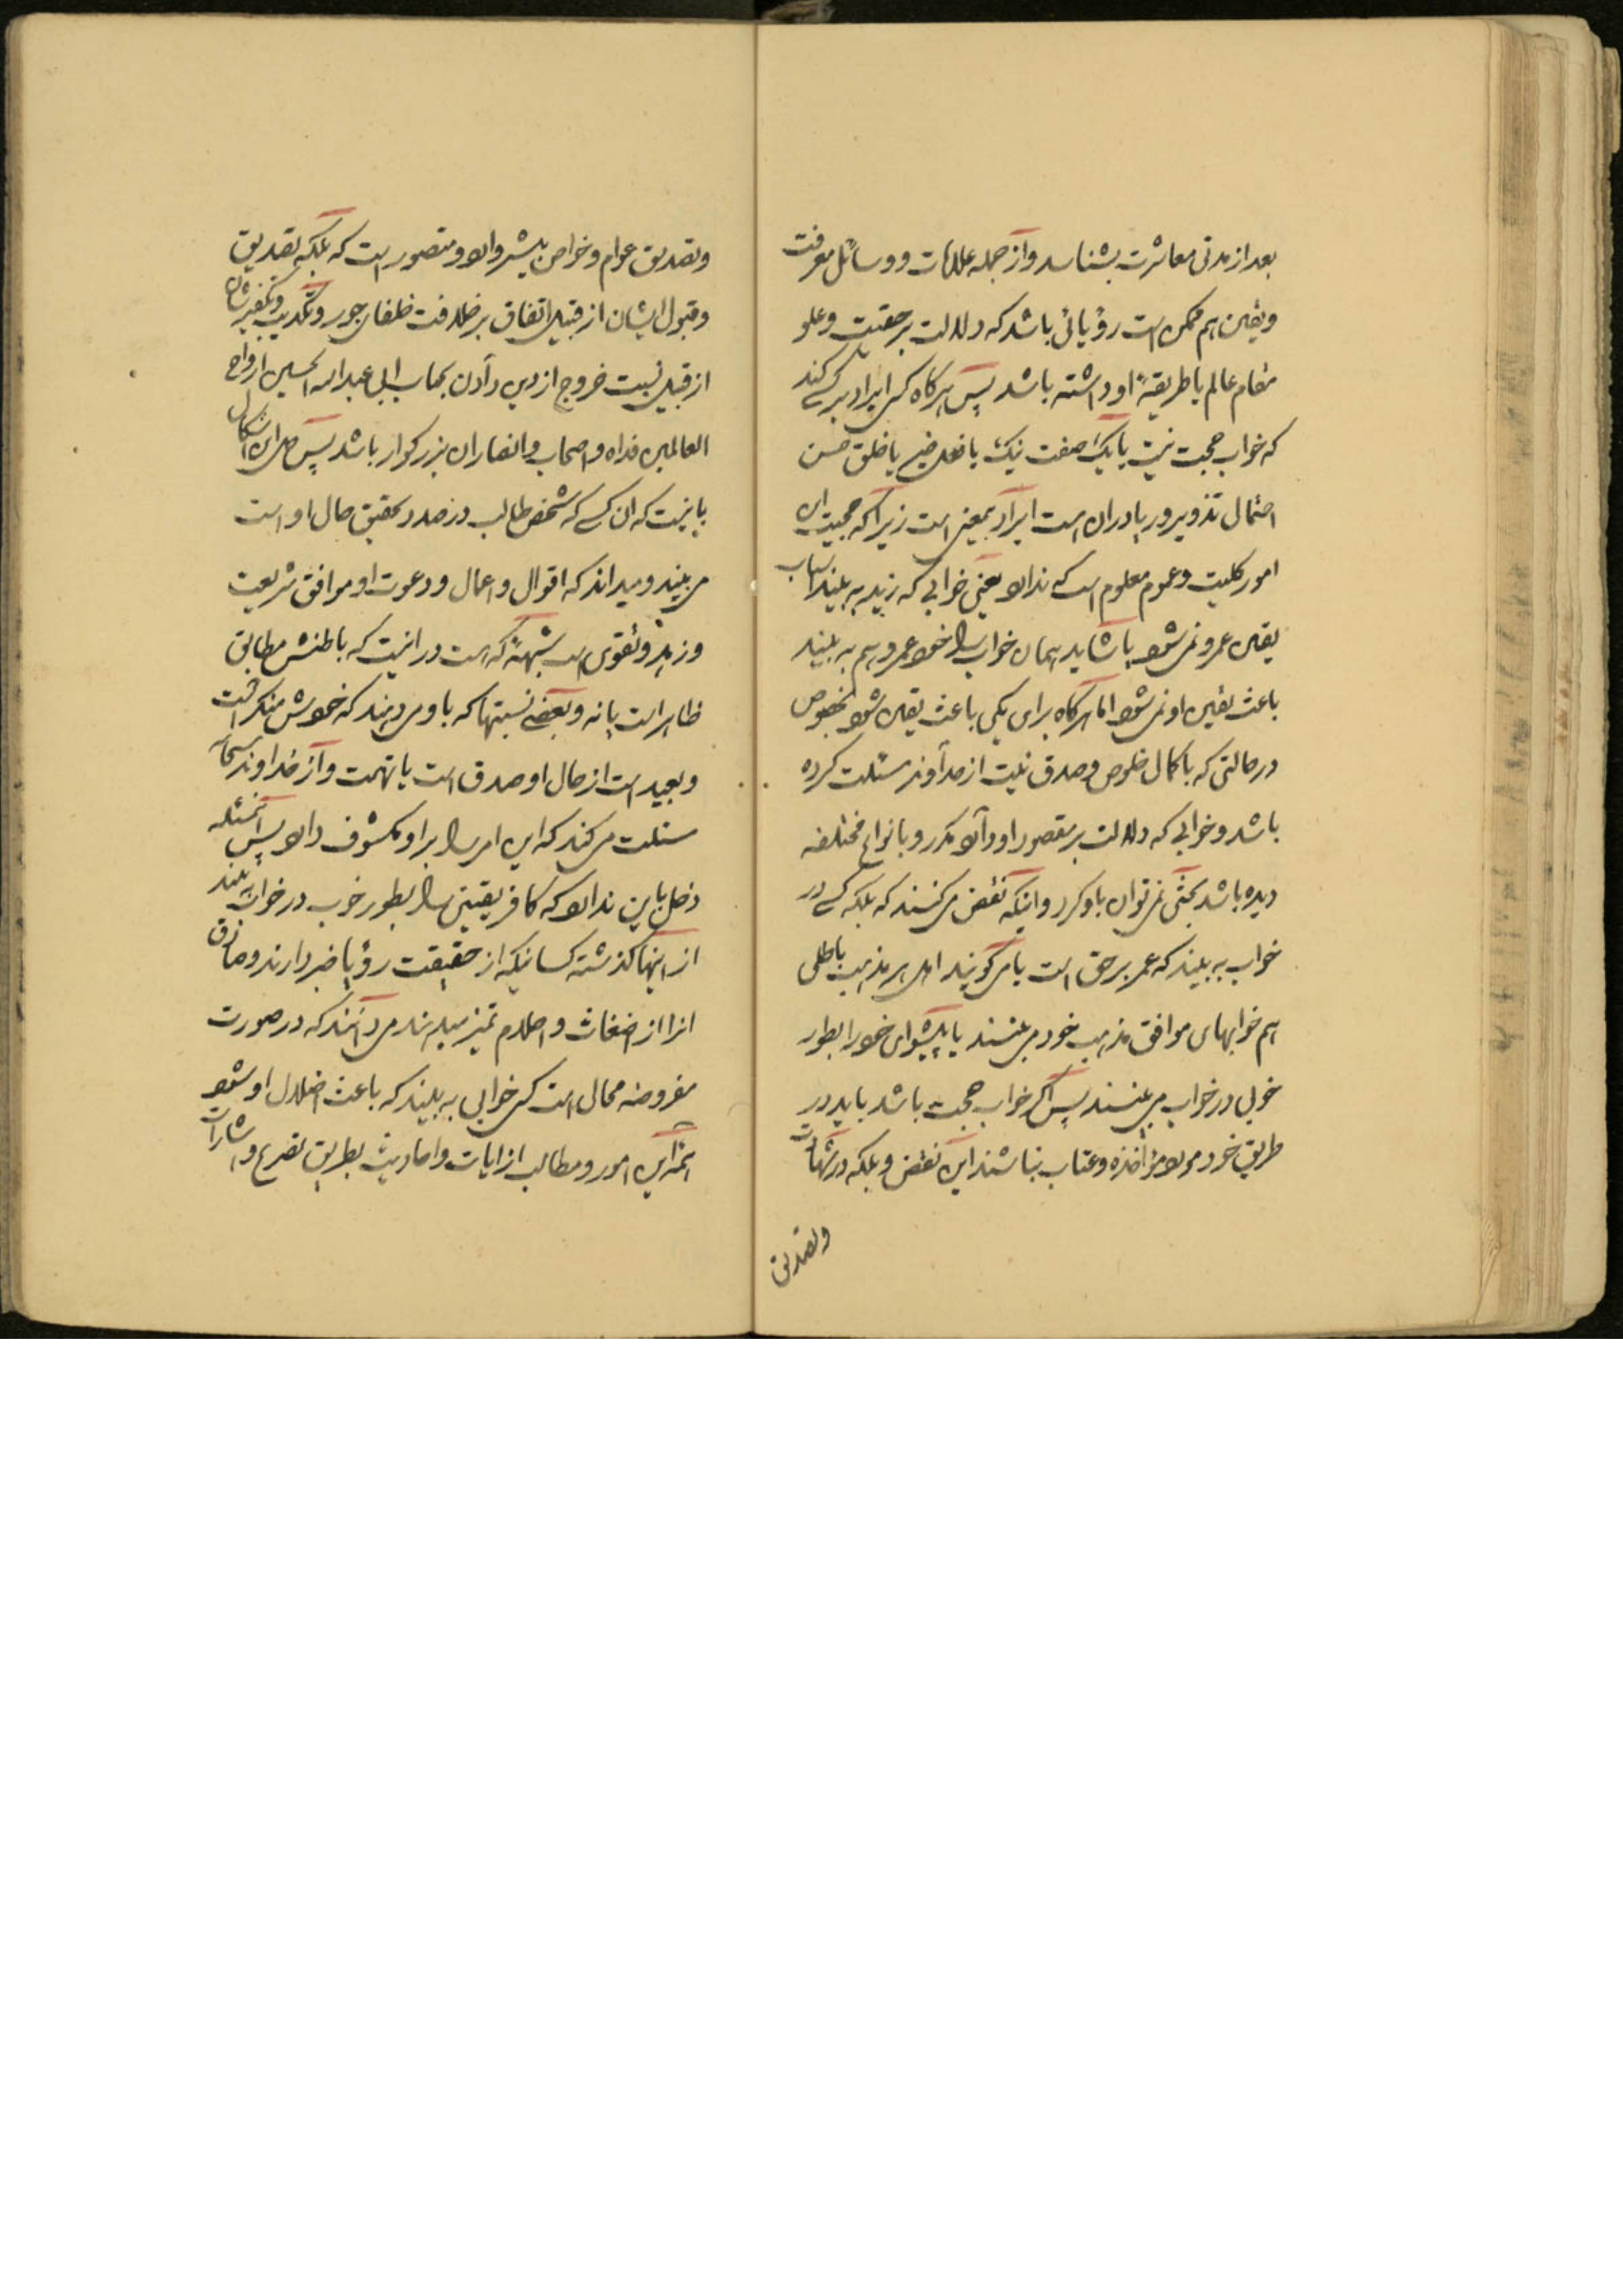 بعد از مدتی معاشرت بشناسد و از جمله علامات و وسائل معرفت
و یقین هم ممکن است رؤیائی باشد که دلالت بر حقیت و علو
مقام عالم یا طریقهٔ او داشته باشد پس هرگاه کسی ایراد بر کسی کند
که خواب حجت نیست یا یک صفت نیک یا فعل خیر یا خلق حسن
احتمال تذویر و ریا در ان است ایراد بیمعنی است زیرا که حجیت این
امور کلیت و عموم معلوم است که ندارد یعنی خوابی که زید به بیند اسباب
یقین عمرو نمیشود یا شاید همان خواب را خود عمرو هم به بیند
باعث یقین او نمیشود اما هرگاه برای یکی باعث یقین شود بخصوص
در حالتی که با کمال خلوص و صدق نیت از خداوند مسئلت کرده
باشد و خوابی که دلالت بر مقصود او دارد مکرر و بانواع مختلفه
دیده باشد بحثی نمیتوان باو کرد و اینکه نقض میکنند که بلکه کسی در
خواب به بیند که عمر بر حق است یا میگویند اهل هر مذهب باطلی
هم خوابهای موافق مذهب خود می بینند یا پیشوای خود را بطور
خوبی در خواب می بینند پس اگر خواب حجت باشد باید در
طریق خود مورد مؤاخذه و عتاب نباشند این نقض و بلکه در شهادت
و تصدیق
و تصدیق عوام و خواص بیشتر وارد و متصور است که بلکه تصدیق
و قبول ایشان از قبیل اتفاق بر خلافت خلفای جور و تکذیب و تکفیرشان
از قبیل نسبت خروج از دین دادن بجناب ابی عبدالله الحسین ارواح
العالمین فداه و اصحاب و انصار ان بزرگوار باشد پس حل این اشکال
باینست که ان کسی که شخص طالب در صدد تحقیق حال او است
می بیند و میداند که اقوال و اعمال و دعوت او موافق شریعت
و زهد و تقوی است شبههٔ که هست در اینست که باطنش مطابق
ظاهر است یا نه و بعضی نسبتها که باو میدهند که خودش منکر است
و بعید است از حال او صدق است یا تهمت و از خداوند سبحانه
مسئلت میکند که این امر را بر او مکشوف دارد پس این مسئله
دخل باین ندارد که کافر یقینی را بطور خوب در خواب بیند
از اینها گذشته کسانیکه از حقیقت رؤیا خبر دارند و صادق
انرا از اضغاث و احلام تمیز میدهند میدانند که در صورت
مفروضه محال است کسی خوابی به بیند که باعث اضلال او شود
تتمه این امور و مطالب از ایات و احادیث بطریق تصریح و اشارات